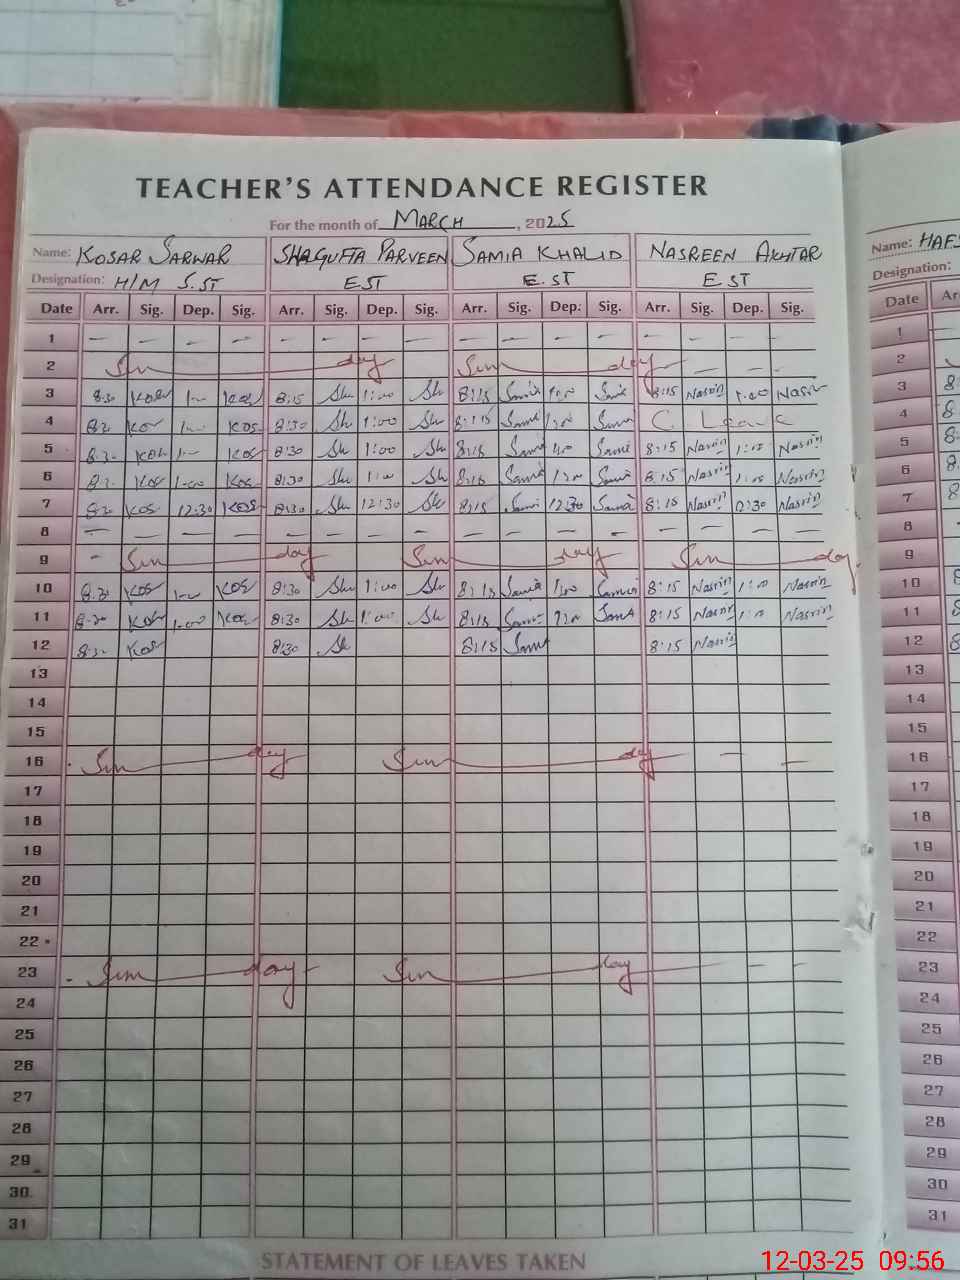 TEACHER'S ATTENDANCE REGISTER
For the month of MARCH, 2025
Name: KOSAR SARWAR SHAGUFTA PARVEEN SAMIA KHALID NASREEN AKHTAR Name: HAFS
Designation: H/M S.ST EST E.ST EST Designation:
Date Arr. Sig. Dep. Sig. Arr. Sig. Dep. Sig. Arr. Sig. Dep: Sig. Arr. Sig. Dep. Sig. Date Arr
1 — — — — — — — — — — — — — — — — 1
2 Sun day Sun day — — 2
3 8:30 KOS KOS 8:15 Sh 1:00 Sh 8:15 Samia 1:00 Samia 8:15 Nasrin 1:00 Nasrin 3 8
4 KOS KOS 8:30 Sh 1:00 Sh 8:15 Sami C. Leave 4 8
5 8:30 KOS KOS 8:30 Sh 1:00 Sh 8:15 Sami 1:00 Sami 8:15 Nasrin Nasrin 5 8
6 KOS 1:00 KOS 8:30 Sh 1:00 Sh 8:15 Sami Sami 8:15 Nasrin Nasrin 6 8
7 KOS 12:30 KOS 8:30 Sh 12:30 Sh 8:15 Sami 12:30 Samia 8:15 Nasrin 12:30 Nasrin 7 8
8 — — — — — — — — — — — — — — — 8
9 - Sun day Sun day Sun day 9
10 8:30 KOS KOS 8:30 Sh 1:00 Sh 8:15 Samia 1:00 Samia 8:15 Nasrin Nasrin 10 8
11 8:30 KOS 1:00 KOS 8:30 Sh 1:00 Sh 8:15 Sami Sami 8:15 Nasrin Nasrin 11 8
12 8:30 KOS 8:30 Sh 8:15 Sami 8:15 Nasrin 12 8
13 13
14 14
15 15
16 Sun day Sun day — — 16
17 17
18 18
19 19
20 20
21 21
22 22
23 Sun day Sun day — — 23
24 24
25 25
26 26
27 27
28 28
29 29
30 30
31 31
STATEMENT OF LEAVES TAKEN
12-03-25 09:56